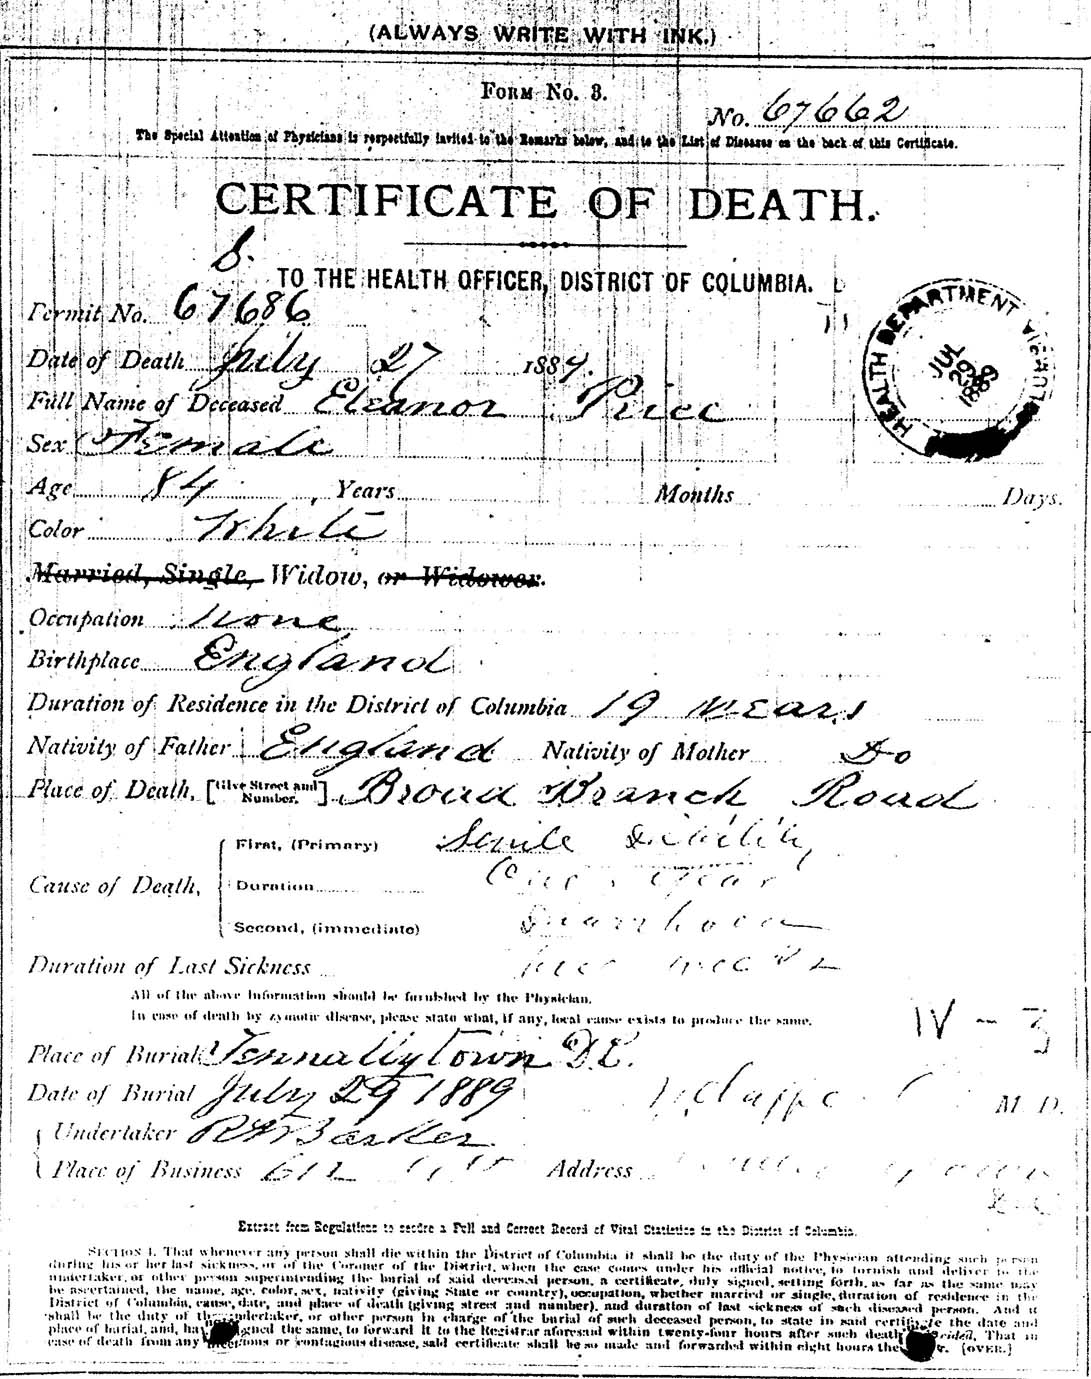 (ALWAYS WRITE WITH INK.)
FORM No. 3.
No. 67662
The Special Attention of Physicians is respectfully invited to the Remarks below, and to the List of Diseases on the back of this Certificate.
CERTIFICATE OF DEATH.
TO THE HEALTH OFFICER, DISTRICT OF COLUMBIA.
HEALTH DEPARTMENT
JUL 29 1889
Permit No. 67686
Date of Death July 27 1889.
Full Name of Deceased Eleanor Price
Sex Female
Age 84 Years Months Days.
Color White
Married, Single, Widow, or Widower.
Occupation None
Birthplace England
Duration of Residence in the District of Columbia 19 years
Nativity of Father England Nativity of Mother Do
Place of Death, [Give Street and Number.] Broad Branch Road
First, (Primary) Senile Debility
Cause of Death, Duration One Year
Second, (immediate) Diarrhoea
Duration of Last Sickness weeks
All of the above information should be furnished by the Physician.
In case of death by zymotic disease, please state what, if any, local cause exists to produce the same.
IV - 3
Place of Burial Tennallytown D.C.
Date of Burial July 29 1889 M. D.
Undertaker Barker
Place of Business 612 Address
Extract from Regulations to secure a Full and Correct Record of Vital Statistics in the District of Columbia.
SECTION 1. That whenever any person shall die within the District of Columbia it shall be the duty of the Physician attending such person
during his or her last sickness, or of the Coroner of the District, when the case comes under his official notice, to furnish and deliver to the
undertaker, or other person superintending the burial of said deceased person, a certificate, duly signed, setting forth, as far as the same may
be ascertained, the name, age, color, sex, nativity (giving State or country), occupation, whether married or single, duration of residence in the
District of Columbia, cause, date, and place of death (giving street and number), and duration of last sickness of such diseased person. And it
shall be the duty of the undertaker, or other person in charge of the burial of such deceased person, to state in said certificate the date and
place of burial, and, having signed the same, to forward it to the Registrar aforesaid within twenty-four hours after such death: Provided, That in
case of death from any infectious or contagious disease, said certificate shall be so made and forwarded within eight hours thereafter. (OVER.)